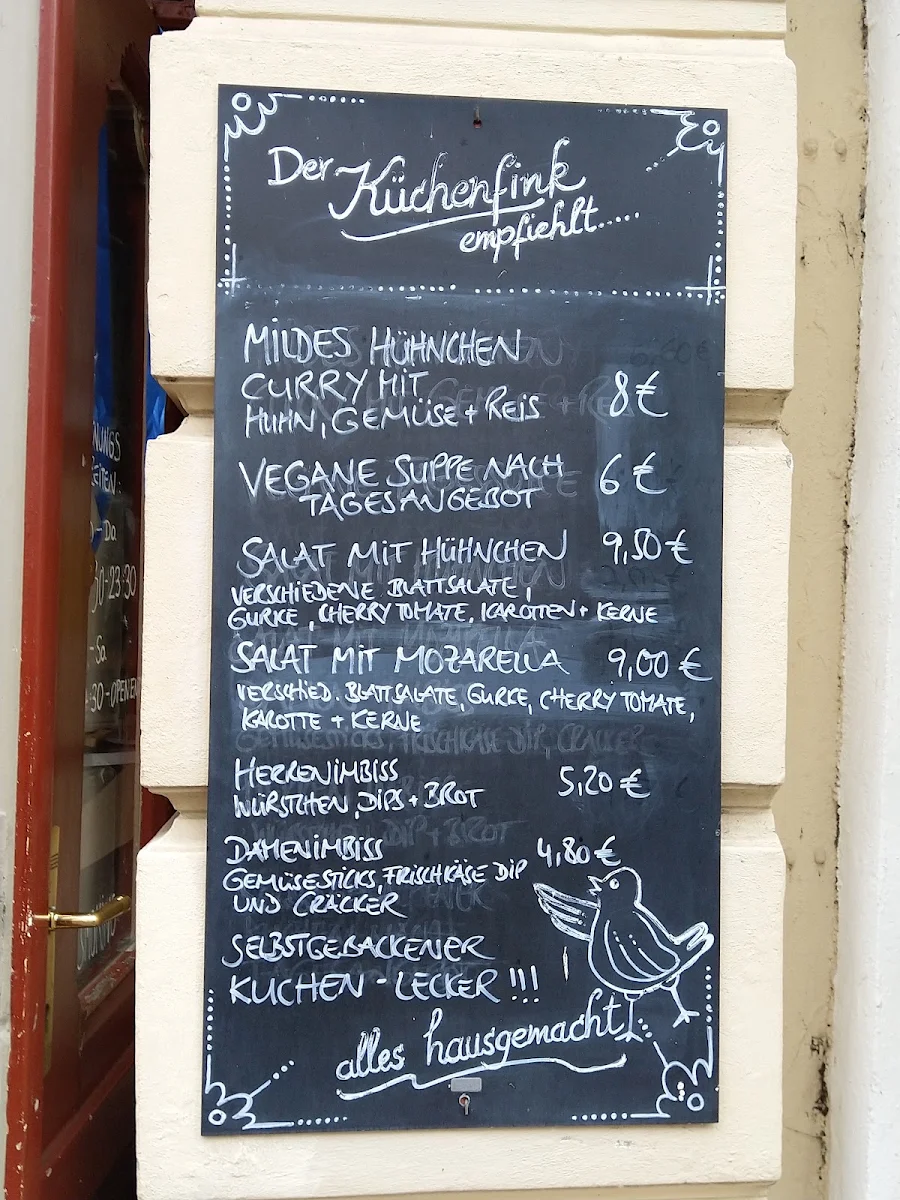 Der Küchenfink
empfiehlt.....
MILDES HÜHNCHEN
CURRY MIT
HUHN, GEMÜSE + REIS 8€
VEGANE SUPPE NACH 6€
TAGESANGEBOT
SALAT MIT HÜHNCHEN 9,50€
VERSCHIEDENE BLATTSALATE,
GURKE, CHERRY TOMATE, KAROTTEN + KERNE
SALAT MIT MOZARELLA 9,00€
VERSCHIED. BLATTSALATE, GURKE, CHERRY TOMATE,
KAROTTE + KERNE
HERRENIMBISS 5,20€
WÜRSTCHEN, DIPS + BROT
DAMENIMBISS 4,80€
GEMÜSESTICKS, FRISCHKÄSE DIP
UND CRÄCKER
SELBSTGEBACKENER
KUCHEN - LECKER !!!
alles hausgemacht!
NUNGS
ZEITEN:
- Do.
30-23:30
- Sa.
:30-OPENEN